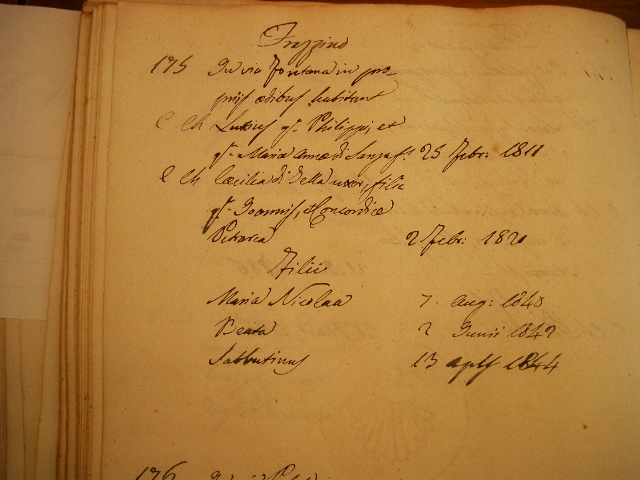 Frezzino
175 In via Fontana in pro
prijs ædibus habitant
C Ch Lutius qm. Philippi, et
qm. Mariæ Annæ di Sanza fs. 25 Febr: 1811
C Ch Cæcilia di Della uxor, filia
qm. Joannis, et Concordiæ
Petrarca 2 Febr: 1820
Filii
Maria Nicolaa 7 aug: 1840
Beata 2 Junii 1842
Sabbutinus 13 aplis 1844
176 In via